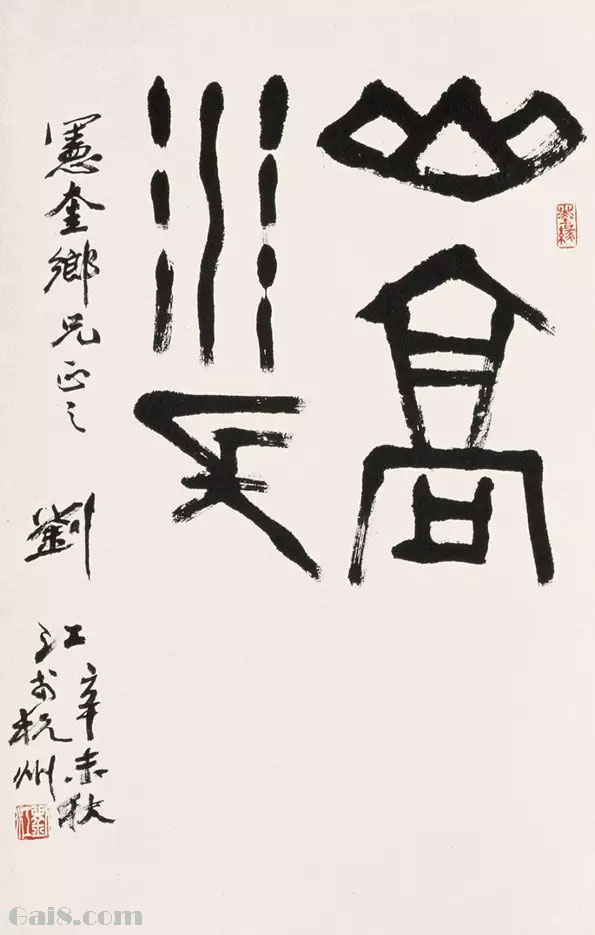 山高
水長
憲奎鄉兄正之
辛未秋
劉江於杭州
Gai8.com